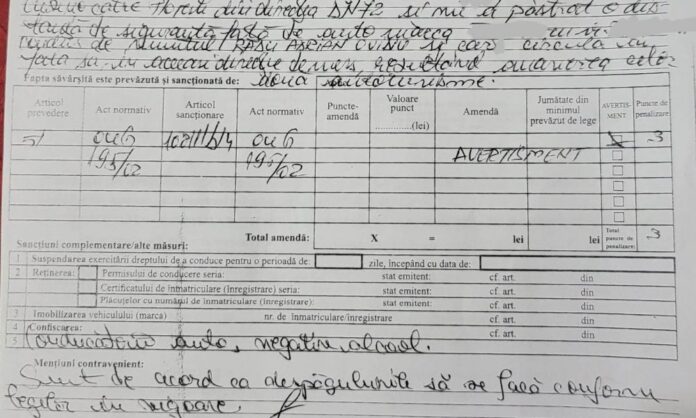 către Florești din direcția DN72 și nu a păstrat o dis
tanță de siguranță față de auto marca
condus de numitul RADU ADRIAN OVIDIU și care circula în
fața sa în aceeași direcție de mers, rezultând avarierea celor
două autoturisme.
Fapta săvârșită este prevăzută și sancționată de:
Articol prevedere Act normativ Articol sancționare Act normativ Puncte-amendă Valoare punct ..............(lei) Amendă Jumătate din minimul prevăzut de lege AVERTISMENT Puncte de penalizare
51 OUG OUG X 3
195/02 195/02 AVERTISMENT
Total amendă: X = lei lei Total puncte de penalizare: 3
Sancțiuni complementare/alte măsuri:
1 Suspendarea exercitării dreptului de a conduce pentru o perioadă de: zile, începând cu data de:
2 Reținerea: Permisului de conducere seria: stat emitent: cf. art. din
Certificatului de înmatriculare (înregistrare) seria: stat emitent: cf. art. din
Plăcuțelor cu numărul de înmatriculare (înregistrare): stat emitent: cf. art. din
3 Imobilizarea vehiculului (marca) nr. de înmatriculare/înregistrare cf. art. din
4 Confiscarea: cf. art. din
5 Conducătorii auto, negativi alcool.
Mențiuni contravenient:
Sunt de acord ca despăgubirile să se facă conform
legilor în vigoare.